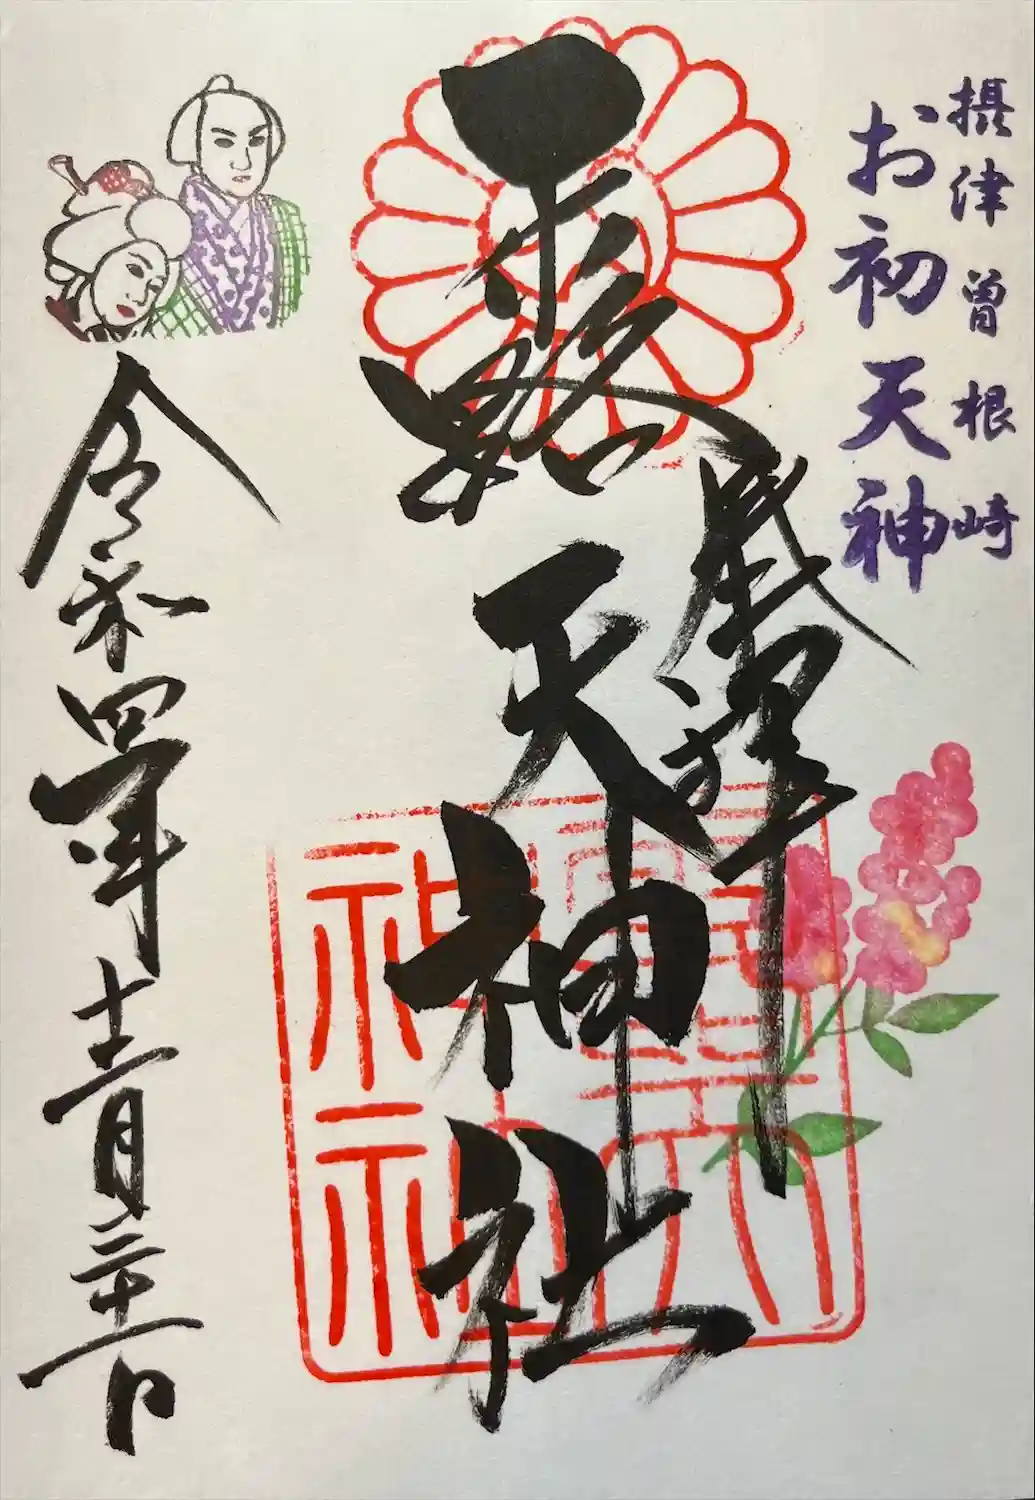 摂津曽根崎
お初天神
露天神社
令和四年十二月三十一日
露天
神社